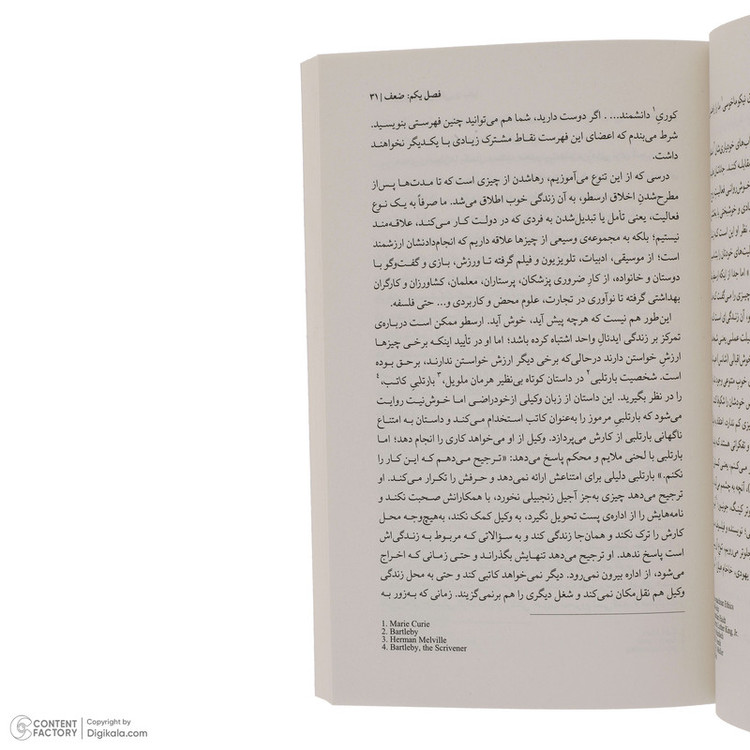 فصل یکم: ضعف | ۳۱
کوری¹ دانشمند... . اگر دوست دارید، شما هم می‌توانید چنین فهرستی بنویسید.
شرط می‌بندم که اعضای این فهرست نقاط مشترک زیادی با یکدیگر نخواهند
داشت.
درسی که از این تنوع می‌آموزیم، رهاشدن از چیزی است که تا مدت‌ها پس‌از
مطرح‌شدنِ اخلاق ارسطو، به آن زندگی خوب اطلاق می‌شد. ما صرفاً به یک نوع
فعالیت، یعنی تأمل یا تبدیل‌شدن به فردی که در دولت کار می‌کند، علاقه‌مند
نیستیم؛ بلکه به مجموعه‌ی وسیعی از چیزها علاقه داریم که انجام‌دادنشان ارزشمند
است؛ از موسیقی، ادبیات، تلویزیون و فیلم گرفته تا ورزش، بازی و گفت‌وگو با
دوستان و خانواده، از کارِ ضروری پزشکان، پرستاران، معلمان، کشاورزان و کارگران
بهداشتی گرفته تا نوآوری در تجارت، علوم محض و کاربردی و... حتی فلسفه.
این‌طور هم نیست که هرچه پیش آید، خوش آید. ارسطو ممکن است درباره‌ی
تمرکز بر زندگی ایدئالِ واحد اشتباه کرده باشد؛ اما او در تأیید اینکه برخی چیزها
ارزشِ خواستن دارند درحالی‌که برخی دیگر ارزش خواستن ندارند، برحق بوده
است. شخصیت بارتلبی² در داستان کوتاه بی‌نظیر هرمان ملویل،³ بارتلبیِ کاتب،⁴
را در نظر بگیرید. این داستان از زبان وکیلی ازخودراضی اما خوش‌نیت روایت
می‌شود که بارتلبیِ مرموز را به‌عنوان کاتب استخدام می‌کند و داستان به امتناع
ناگهانی بارتلبی از کارش می‌پردازد. وکیل از او می‌خواهد کاری را انجام دهد؛ اما
بارتلبی با لحنی ملایم و محکم پاسخ می‌دهد: «ترجیح می‌دهم که این کار را
نکنم.» بارتلبی دلیلی برای امتناعش ارائه نمی‌دهد و حرفش را تکرار می‌کند. او
ترجیح می‌دهد چیزی به‌جز آجیل زنجبیلی نخورد، با همکارانش صحبت نکند و
نامه‌هایش را از اداره‌ی پست تحویل نگیرد، به وکیل کمک نکند، به‌هیچ‌وجه محل
کارش را ترک نکند و همان‌جا زندگی کند و به سؤالاتی که مربوط به زندگی‌اش
است پاسخ ندهد. او ترجیح می‌دهد تنهایش بگذراند و حتی زمانی که اخراج
می‌شود، از اداره بیرون نمی‌رود. دیگر نمی‌خواهد کاتبی کند و حتی به محل زندگی
وکیل هم نقل‌مکان نمی‌کند و شغل دیگری را هم برنمی‌گزیند. زمانی که به‌زور به
1. Marie Curie
2. Bartleby
3. Herman Melville
4. Bartleby, the Scrivener
CONTENT FACTORY
Copyright by
Digikala.com